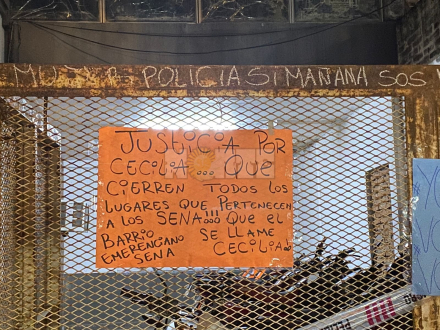 MUJER POLICIA SI MAÑANA SOS
JUSTICIA POR
CECILIA... QUE
CIERREN TODOS LOS
LUGARES QUE PERTENECEN
A LOS SENA!!!... QUE EL
BARRIO SE LLAME
EMERENCIANO CECILIA!
SENA